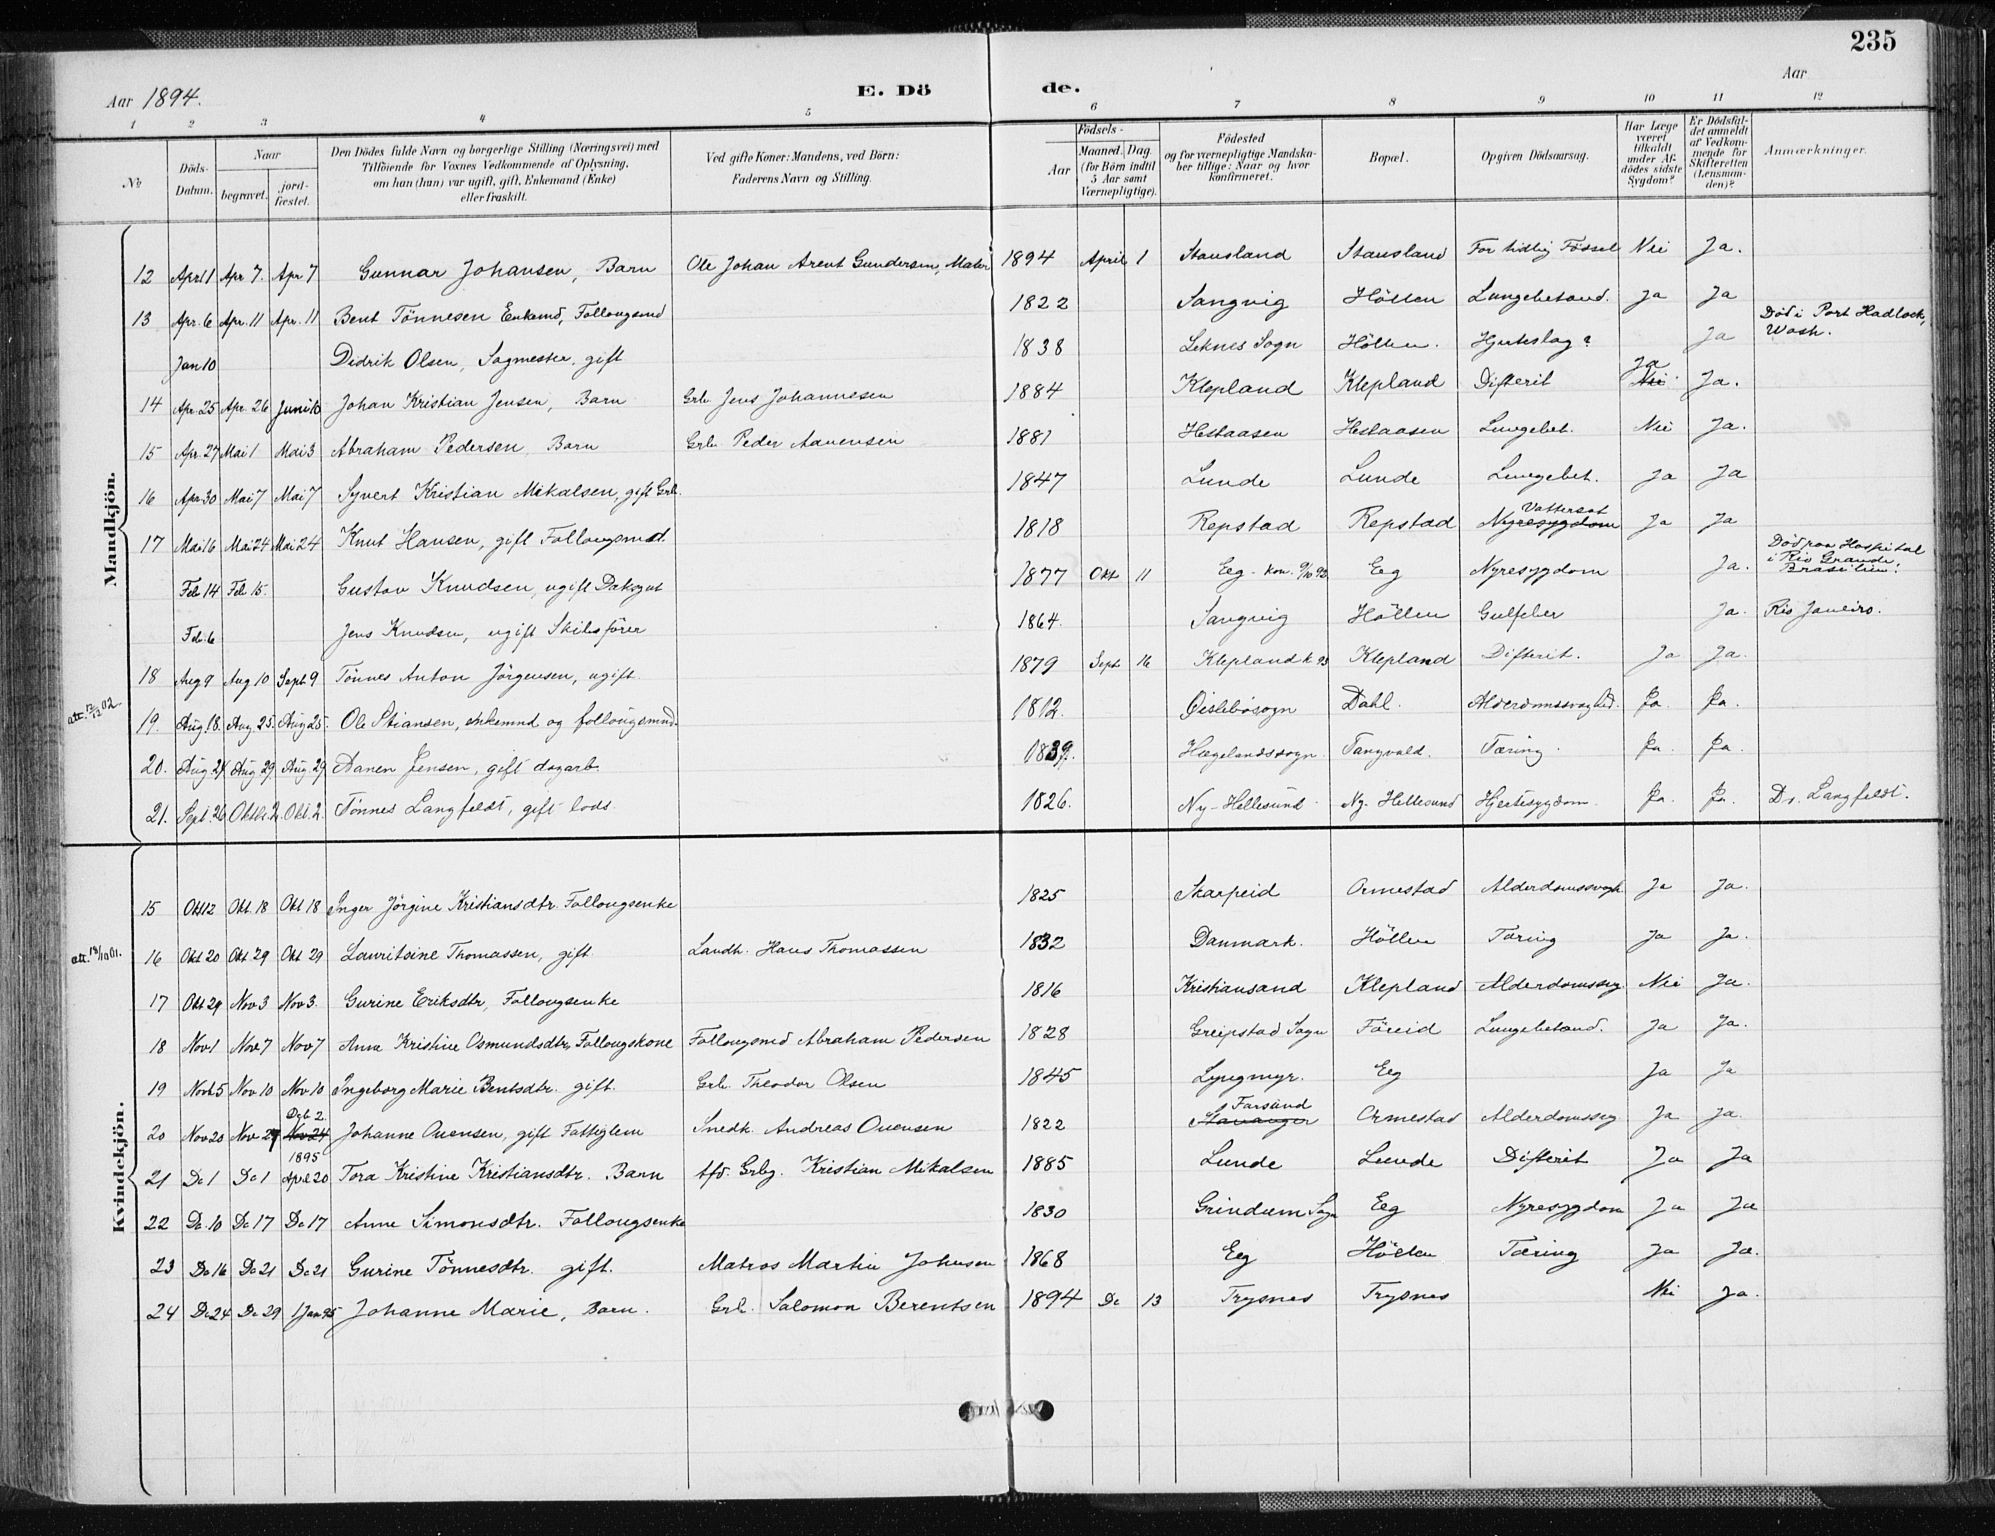 235
Aar 1894.
E. Dö
de.
Aar
1 2 3 4 5 6 7 8 9 10 11 12
No
Döds-Datum.
Naar
begravet.
jord-fæstet.
Den Dödes fulde Navn og borgerlige Stilling (Næringsvei) med
Tilföiende for Voxnes Vedkommende af Oplysning,
om han (hun) var ugift, gift, Enkemand (Enke)
eller fraskilt.
Ved gifte Koner: Mandens, ved Börn:
Faderens Navn og Stilling.
Födsels-
Aar
Maaned. Dag
(for Börn indtil
5 Aar samt
Værnepligtige).
Födested
og for værnepligtige Mandska-
ber tillige: Naar og hvor
konfirmeret.
Bopæl.
Opgiven Dödsaarsag.
Har Læge
været
tilkaldt
under Af-
dödes sidste
Sygdom?
Er Dödsfal-
det anmeldt
af Vedkom-
mende for
Skifteretten
(Lensman-
den)?
Anmærkninger.
Mandkjön.
12 April 1 Apr 7. Apr 7 Gunnar Johansen, Barn Ole Johan Arent Gundersen, Maler 1894 April 1 Stausland Stausland For tidlig Födsel Nei Ja.
13 Apr. 6 Apr. 11 Apr. 11 Bent Tönnesen Enkemd, Follougsmd 1822 Sangvig Höllen Lungebetænd. Ja Ja
Jan 10 Didrik Olsen, Sagmester, gift 1838 Leknes Sogn Höllen. Hjerteslag? Ja Död i Port Hadlock, Wash.
14 Apr. 25 Apr. 26 Juni 10 Johan Kristian Jensen, Barn Grb. Jens Johannesen 1884 Klepland Klepland Difterit Ja Nei Ja.
15 Apr. 27 Mai 1 Mai 3 Abraham Pedersen, Barn Grb. Peder Aanensen 1881 Hestaasen Hestaasen Lungebet. Nei Ja.
16 Apr 30 Mai 7 Mai 7 Syvert Kristian Mikalsen, gift Grb. 1847 Lunde Lunde Lungebet. Ja Ja
17 Mai 16 Mai 24 Mai 24 Knut Hansen, gift Follougsmd. 1818 Repstad Repstad Vattersot Nyresygdom Ja Ja
Feb 14 Feb 15. Gustav Knudsen, ugift Daksgut 1877 Okt 11 Eeg - kon. 9/10 92 Eeg Nyresygdom Ja. Död paa Hospital i Rio Grande, Brasilien.
Feb. 6 Jens Knudsen, ugift Skibsförer 1864. Sangvig Höllen Gulfeber Ja. Rio Janeiro.
18 Aug 9 Aug 10 Sept 9 Tönnes Anton Jörgensen, ugift 1879 Sept. 16 Klepland k. 93 Klepland Difterit. Ja Ja.
att. 12/12 02.
19. Aug. 18. Aug. 25. Aug 25. Ole Stiansen, enkemnd og follougsmnd. 1812. Øislebösogn Dahl. Alderdomssvaghed. Ja. Ja.
20. Aug. 24 Aug 29. Aug. 29 Aanen Jensen, gift dagarb. 1839. Hægelandssogn Tangvald. Tæring. Ja. Ja.
21. Sept. 26 Oktb. 2. Okt. 2. Tönnes Langfeldt, gift lods. 1826. Ny-Hellesund Ny-Hellesund Hjertesygdom. Ja. Ja. Dr. Langfeldt.
Kvindekjön.
15 Okt 12 Okt. 18 Okt 18 Inger Jörgine Kristiansdtr. Follougsenke 1825 Skarpeid Ormestad Alderdomssvagh. Ja Ja.
att. 18/10 01.
16 Okt 20 Okt 29 Okt 29 Lauritsine Thomassen, gift. Landh. Hans Thomassen 1832 Danmark. Höllen Tæring Ja Ja.
17 Okt 29 Nov 3 Nov 3. Gurine Eriksdtr, Follougsenke 1816 Kristiansand Klepland Alderdomssvg. Nei Ja.
18 Nov 1 Nov 7 Nov 7 Anne Kristine Osmundsdtr, Follougskone Follougsmd Abraham Pedersen 1828 Greipstad Sogn Föreid Lungebetænd. Ja Ja.
19 Novb. 5 Nov 10 Nov 10 Ingeborg Marie Bentsdtr. gift. Grb. Theodor Olsen 1845 Lyngmyr. Eeg Ja Ja
20 Nov 20 Nov 27 Deb 2. Nov 24 Johanne Ouensen, gift Fattiglem Snedk. Andreas Ouensen 1822 Farsund Stavanger Ormestad Alderdomssvg Ja Ja.
21 De 1 De 1 1895 April 20 Tora Kristine Kristiansdtr. Barn Afd. Grbg. Kristian Mikalsen 1885 Lunde Lunde Difterit Ja Ja
22 De. 10 De 17 De 17 Anne Simonsdtr. Follougsenke 1830 Grindum Sogn Eeg Nyresygdom Ja Ja
23 De 16 De 21 De 21 Gurine Tönnesdtr. gift. Matros Martin Johnsen 1868 Eeg Höllen Tæring Ja Ja.
24 De 24 De 29 1 Jan 95 Johanne Marie, Barn. Grb. Salomon Berentsen 1894 De 13 Trysnes Trysnes Nei Ja.